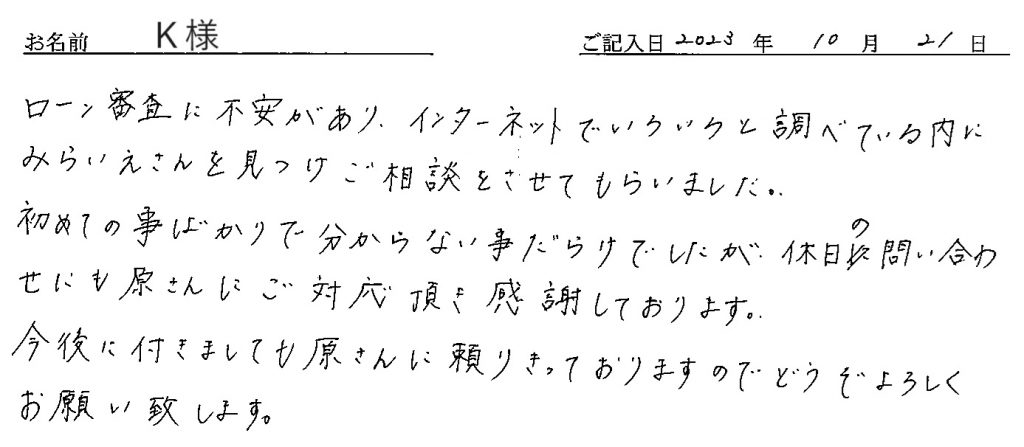 お名前 K様 ご記入日 2023年 10月 21日
ローン審査に不安があり、インターネットでいろいろと調べている内に
みらいえさんを見つけご相談をさせてもらいました。
初めての事ばかりで分からない事だらけでしたが、休日の問い合わ
せにも原さんにご対応頂き感謝しております。
今後に付きましても原さんに頼りきっておりますのでどうぞよろしく
お願い致します。